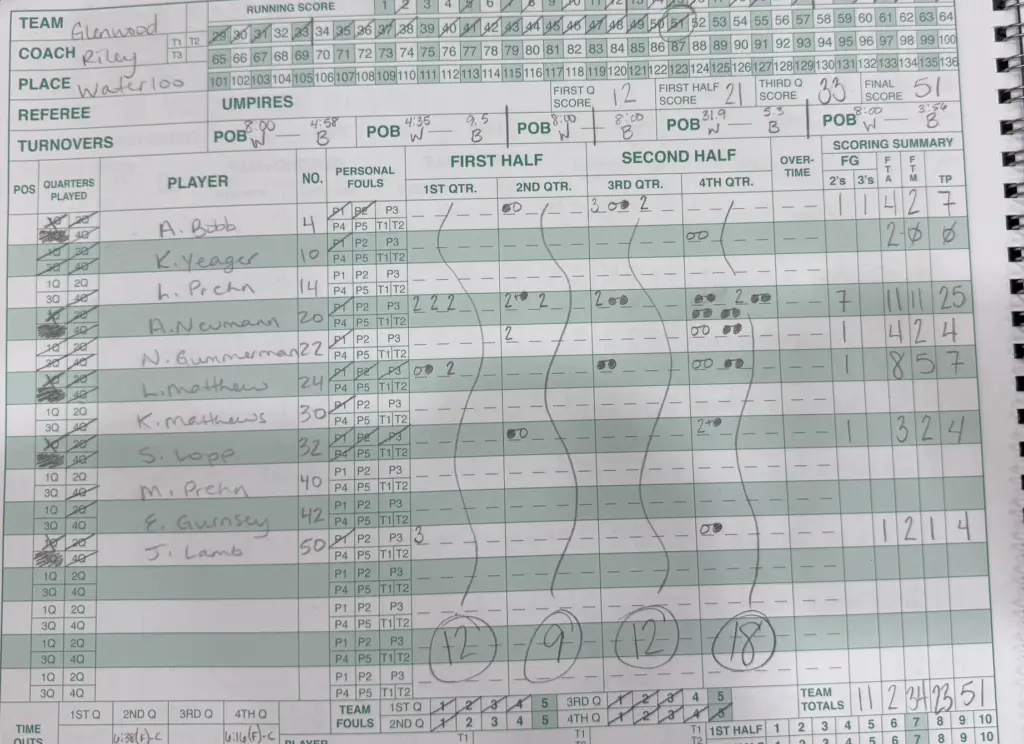 TEAM Glenwood RUNNING SCORE 1 2 3 4 5 6 7 8 9 10
29 30 31 32 33 34 35 36 37 38 39 40 41 42 43 44 45 46 47 48 49 50 51 52 53 54 55 56 57 58 59 60 61 62 63 64
COACH Riley T1 T2 T3 65 66 67 68 69 70 71 72 73 74 75 76 77 78 79 80 81 82 83 84 85 86 87 88 89 90 91 92 93 94 95 96 97 98 99 100
PLACE Waterloo 101 102 103 104 105 106 107 108 109 110 111 112 113 114 115 116 117 118 119 120 121 122 123 124 125 126 127 128 129 130 131 132 133 134 135 136
REFEREE UMPIRES FIRST Q SCORE 12 FIRST HALF SCORE 21 THIRD Q SCORE 33 FINAL SCORE 51
TURNOVERS POB 8:00 W — 4:58 B POB 4:35 W — 9.5 B POB 8:00 W — 8:00 B POB 31.9 W — 5.3 B POB 8:00 W — 3:56 B
POS QUARTERS PLAYED PLAYER NO. PERSONAL FOULS FIRST HALF SECOND HALF OVER-TIME SCORING SUMMARY
1ST QTR. 2ND QTR. 3RD QTR. 4TH QTR. FG 2's 3's FTA FTM TP
A. Bobb 4 P1 P2 P3 P4 P5 T1 T2 3 2 1 1 4 2 7
K. Yeager 10 P1 P2 P3 P4 P5 T1 T2 2 0 0
L. Prehn 14 P1 P2 P3 P4 P5 T1 T2
A. Neumann 20 P1 P2 P3 P4 P5 T1 T2 2 2 2 2 2 2 2 7 11 11 25
N. Gummerman 22 P1 P2 P3 P4 P5 T1 T2 2 1 4 2 4
L. Matthew 24 P1 P2 P3 P4 P5 T1 T2 2 1 8 5 7
K. Matthews 30 P1 P2 P3 P4 P5 T1 T2
S. Lopp 32 P1 P2 P3 P4 P5 T1 T2 2 1 3 2 4
M. Prehn 40 P1 P2 P3 P4 P5 T1 T2
E. Gurnsey 42 P1 P2 P3 P4 P5 T1 T2
J. Lamb 50 P1 P2 P3 P4 P5 T1 T2 3 1 2 1 4
1Q 2Q 3Q 4Q P1 P2 P3 P4 P5 T1 T2
1Q 2Q 3Q 4Q P1 P2 P3 P4 P5 T1 T2
1Q 2Q 3Q 4Q P1 P2 P3 P4 P5 T1 T2 12 9 12 18
1Q 2Q 3Q 4Q P1 P2 P3 P4 P5 T1 T2
TEAM FOULS 1ST Q 1 2 3 4 5 3RD Q 1 2 3 4 5 TEAM TOTALS 11 2 34 23 51
2ND Q 1 2 3 4 5 4TH Q 1 2 3 4 5
TIME OUTS 1ST Q 2ND Q 3RD Q 4TH Q T1 T1 T1 T2 1ST HALF 1 2 3 4 5 6 7 8 9 10
4:38(F)-C 4:16(F)-C PLAYER